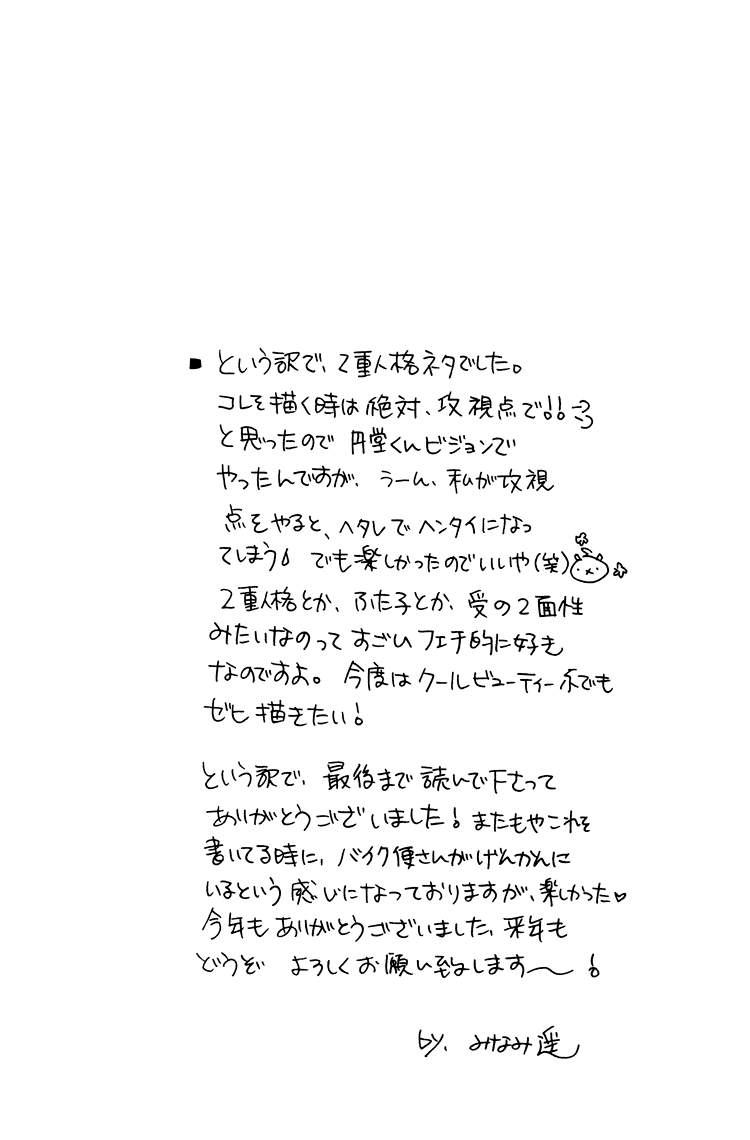 ■ という訳で、2重人格ネタでした。
コレを描く時は絶対、攻視点で!!
と思ったので円堂くんビジョンで
やったんですが、うーん、私が攻視
点をやると、ヘタレでヘンタイになっ
てしまう! でも楽しかったのでいいや(笑)
2重人格とか、ふた子とか、受の2面性
みたいなのってすごいフェチ的に好き
なのですよ。今度はクールビューティーでも
ゼヒ描きたい!
という訳で、最後まで読んで下さって
ありがとうございました! またもやこれを
書いてる時に、バイク便さんがげんかんに
いるという感じになっておりますが、楽しかった♥
今年もありがとうございました、来年も
どうぞ よろしくお願い致します〜!
by、みなみ遥